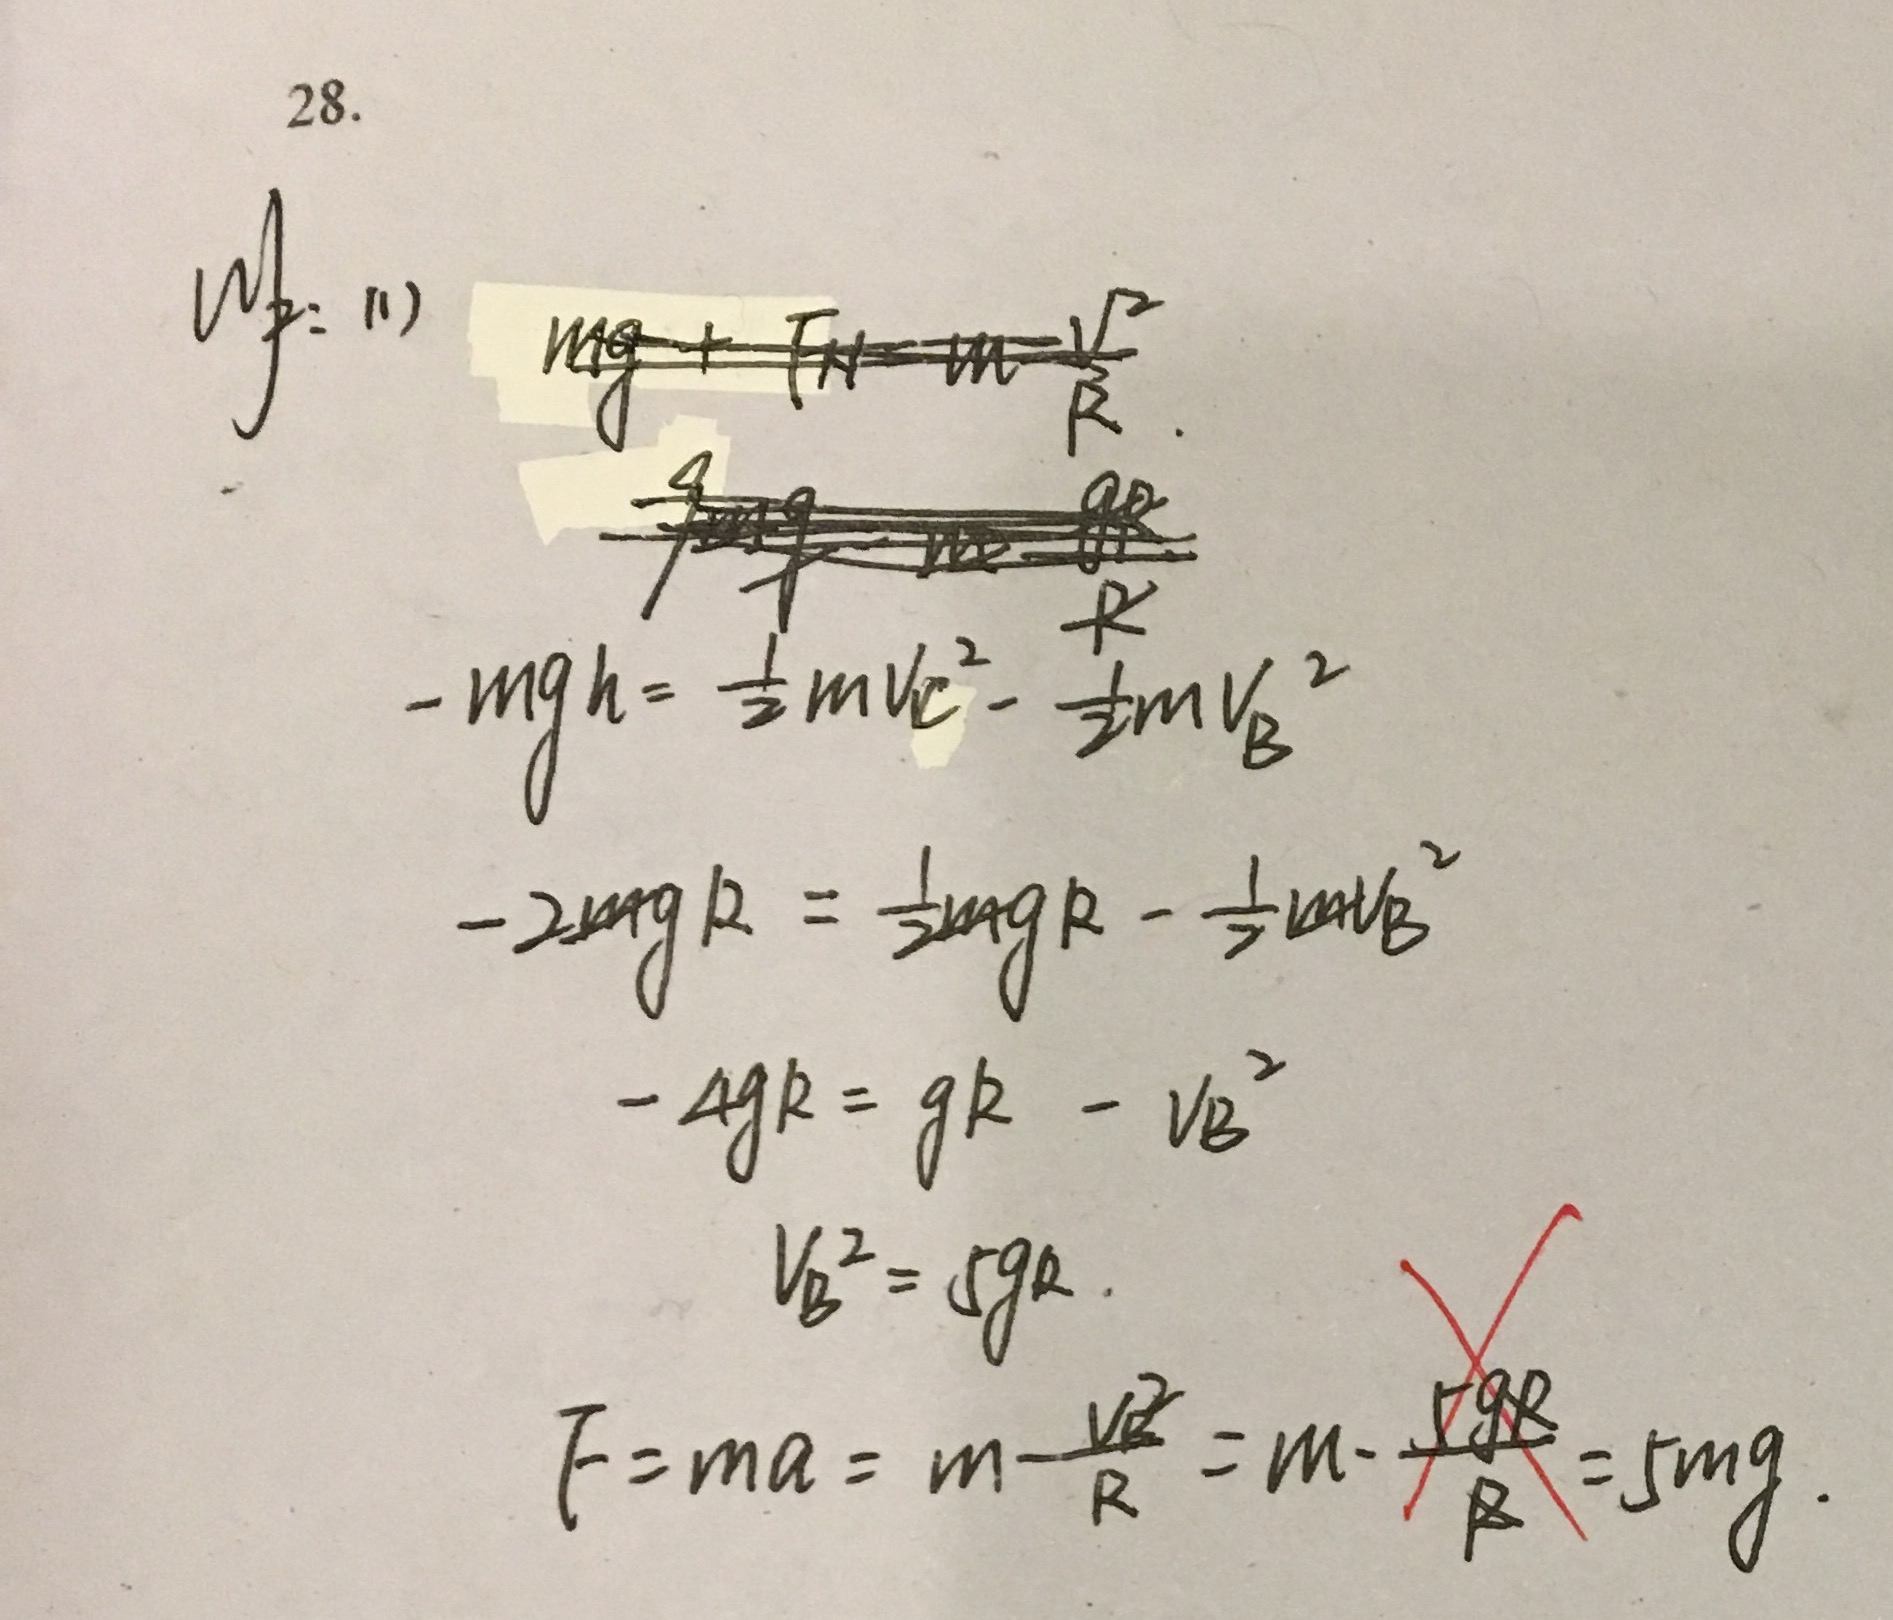 28.
解: (1) mg + FN = m V²/R .
mg = m gR/R
-mgh = 1/2 mVC² - 1/2 mVB²
-2mgR = 1/2 mgR - 1/2 mVB²
-4gR = gR - VB²
VB² = 5gR .
F = ma = m VB²/R = m · 5gR/R = 5mg .